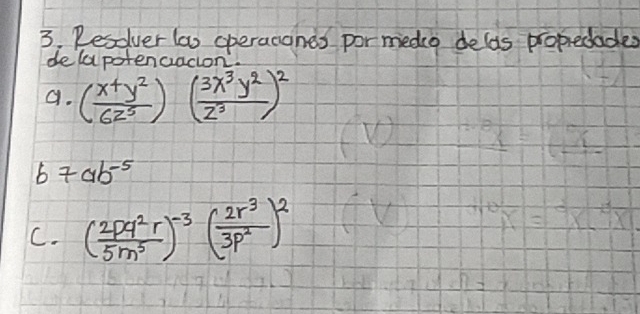 3. Resolver las operaciones por medio de las propiedades
de la potenciacion.
a. (x+y²/6z⁵) (3x³y²/z³)²
b 7ab⁻⁵
c. (2pq²r/5m⁵)⁻³ (2r³/3p²)²